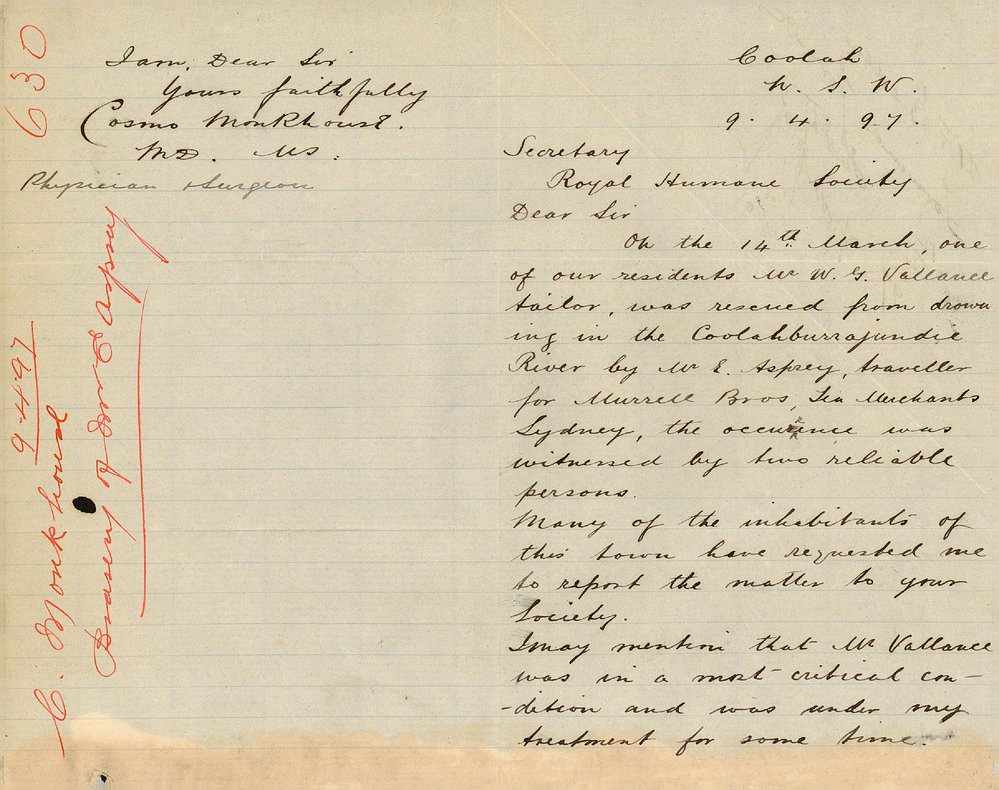 Coolah
N. S. W.
9. 4. 97.
Secretary
Royal Humane Society
Dear Sir
On the 14th March, one
of our residents Mr W. G. Vallance
tailor, was rescued from drown
ing in the Coolahburrajundie
River by Mr E. Asprey, traveller
for Murrell Bros, Tea Merchants
Sydney, the occurence was
witnessed by two reliable
persons.
Many of the inhabitants of
this town have requested me
to report the matter to your
Society.
I may mention that Mr Vallance
was in a most critical con-
-dition and was under my
treatment for some time.
I am, Dear Sir
Yours faithfully
Cosmo Monkhouse.
MD. MS.
Physician & Surgeon
630
9-4-97
C. Monkhouse
Bravery of Mr E Asprey